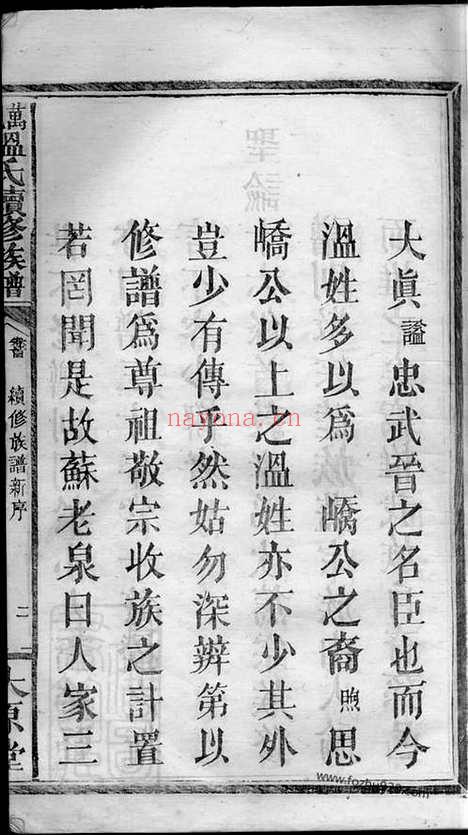 大眞謚忠武晉之名臣也而今
溫姓多以爲嶠公之裔煦思
嶠公以上之溫姓亦不少其外
豈少有傳乎然姑勿深辨第以
修譜爲尊祖敬宗收族之計置
若罔聞是故蘇老泉曰人家三
萬溫氏續修族譜
續修族譜新序
二
太原堂
nayona.cn
www.fozhu920.com